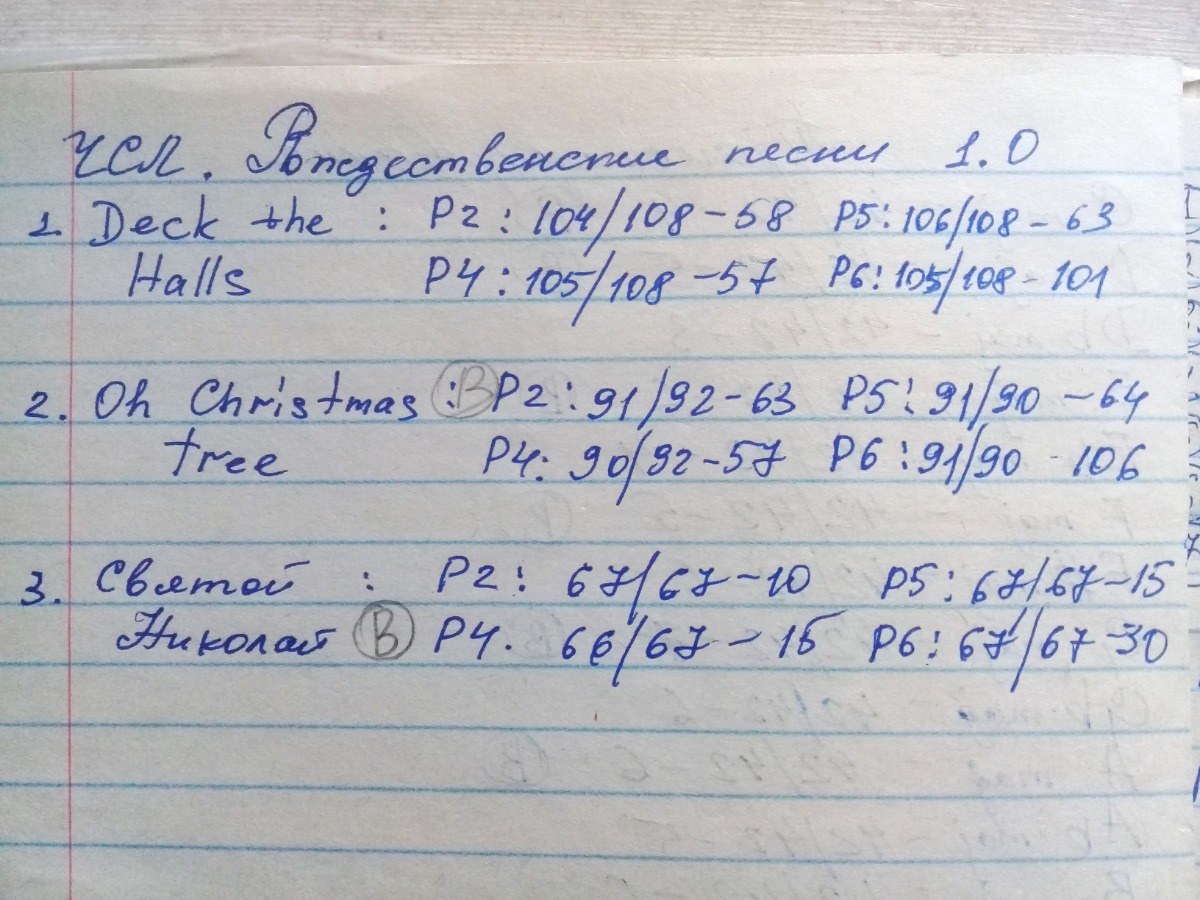 ЧСЛ. Рождественские песни 1.0
1. Deck the : P2 : 104/108 - 58 P5: 106/108 - 63
Halls P4 : 105/108 - 57 P6: 105/108 - 101
2. Oh Christmas : B P2 : 91/92 - 63 P5: 91/90 - 64
tree P4: 90/92 - 57 P6 : 91/90 - 106
3. Святой : P2: 67/67 - 10 P5: 67/67 - 15
Николай B P4. 66/67 - 15 P6: 67/67 - 30